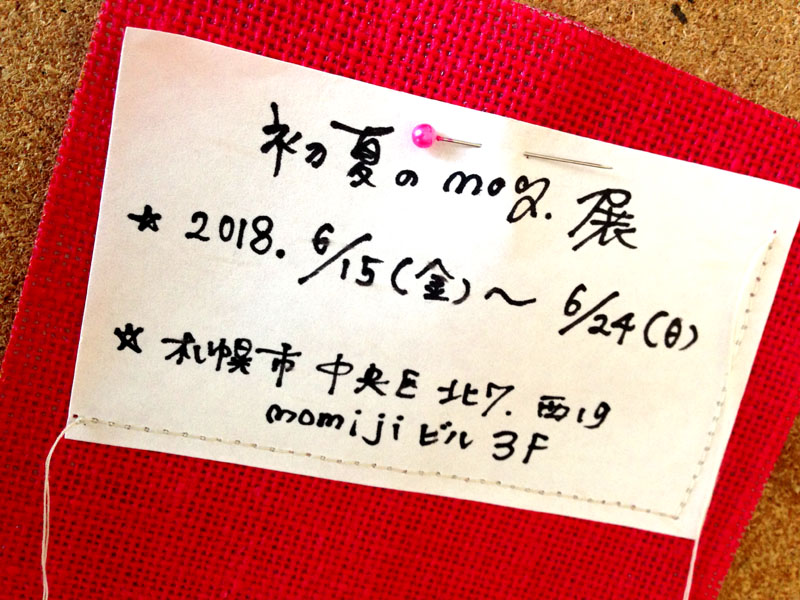 初夏のmog.展
☆ 2018. 6/15(金)～ 6/24(日)
☆ 札幌市 中央区 北7. 西19
momijiビル 3F